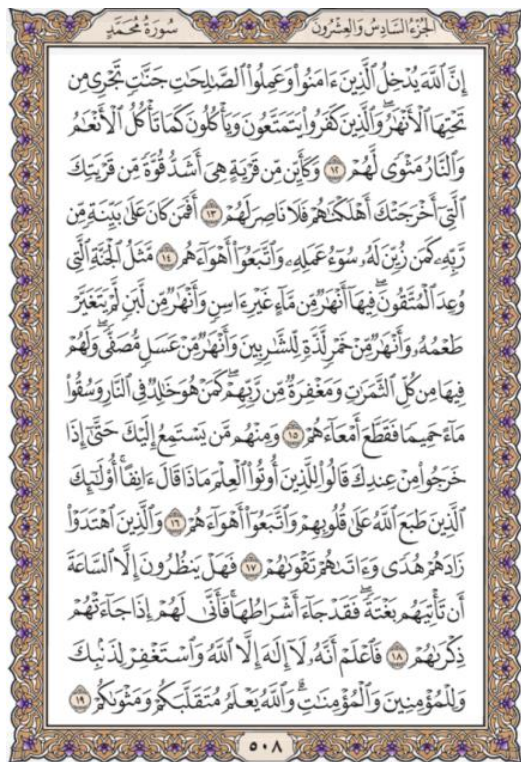 الجُزْءُ السَّادِسُ وَالعِشْرُونَ سُورَةُ مُحَمَّدٍ
إِنَّ ٱللَّهَ يُدْخِلُ ٱلَّذِينَ ءَامَنُوا۟ وَعَمِلُوا۟ ٱلصَّـٰلِحَـٰتِ جَنَّـٰتٍ تَجْرِى مِن
تَحْتِهَا ٱلْأَنْهَـٰرُ ۖ وَٱلَّذِينَ كَفَرُوا۟ يَتَمَتَّعُونَ وَيَأْكُلُونَ كَمَا تَأْكُلُ ٱلْأَنْعَـٰمُ
وَٱلنَّارُ مَثْوًى لَّهُمْ ١٢ وَكَأَيِّن مِّن قَرْيَةٍ هِىَ أَشَدُّ قُوَّةً مِّن قَرْيَتِكَ
ٱلَّتِىٓ أَخْرَجَتْكَ أَهْلَكْنَـٰهُمْ فَلَا نَاصِرَ لَهُمْ ١٣ أَفَمَن كَانَ عَلَىٰ بَيِّنَةٍ مِّن
رَّبِّهِۦ كَمَن زُيِّنَ لَهُۥ سُوٓءُ عَمَلِهِۦ وَٱتَّبَعُوٓا۟ أَهْوَآءَهُم ١٤ مَّثَلُ ٱلْجَنَّةِ ٱلَّتِى
وُعِدَ ٱلْمُتَّقُونَ ۖ فِيهَآ أَنْهَـٰرٌ مِّن مَّآءٍ غَيْرِ ءَاسِنٍ وَأَنْهَـٰرٌ مِّن لَّبَنٍ لَّمْ يَتَغَيَّرْ
طَعْمُهُۥ وَأَنْهَـٰرٌ مِّنْ خَمْرٍ لَّذَّةٍ لِّلشَّـٰرِبِينَ وَأَنْهَـٰرٌ مِّنْ عَسَلٍ مُّصَفًّى ۖ وَلَهُمْ
فِيهَا مِن كُلِّ ٱلثَّمَرَٰتِ وَمَغْفِرَةٌ مِّن رَّبِّهِمْ ۖ كَمَنْ هُوَ خَـٰلِدٌ فِى ٱلنَّارِ وَسُقُوا۟
مَآءً حَمِيمًا فَقَطَّعَ أَمْعَآءَهُمْ ١٥ وَمِنْهُم مَّن يَسْتَمِعُ إِلَيْكَ حَتَّىٰٓ إِذَا
خَرَجُوا۟ مِنْ عِندِكَ قَالُوا۟ لِلَّذِينَ أُوتُوا۟ ٱلْعِلْمَ مَاذَا قَالَ ءَانِفًا ۚ أُو۟لَـٰٓئِكَ
ٱلَّذِينَ طَبَعَ ٱللَّهُ عَلَىٰ قُلُوبِهِمْ وَٱتَّبَعُوٓا۟ أَهْوَآءَهُمْ ١٦ وَٱلَّذِينَ ٱهْتَدَوْا۟
زَادَهُمْ هُدًى وَءَاتَىٰهُمْ تَقْوَىٰهُمْ ١٧ فَهَلْ يَنظُرُونَ إِلَّا ٱلسَّاعَةَ
أَن تَأْتِيَهُم بَغْتَةً ۖ فَقَدْ جَآءَ أَشْرَاطُهَا ۚ فَأَنَّىٰ لَهُمْ إِذَا جَآءَتْهُمْ
ذِكْرَىٰهُمْ ١٨ فَٱعْلَمْ أَنَّهُۥ لَآ إِلَـٰهَ إِلَّا ٱللَّهُ وَٱسْتَغْفِرْ لِذَنۢبِكَ
وَلِلْمُؤْمِنِينَ وَٱلْمُؤْمِنَـٰتِ ۗ وَٱللَّهُ يَعْلَمُ مُتَقَلَّبَكُمْ وَمَثْوَىٰكُمْ ١٩
٥٠٨